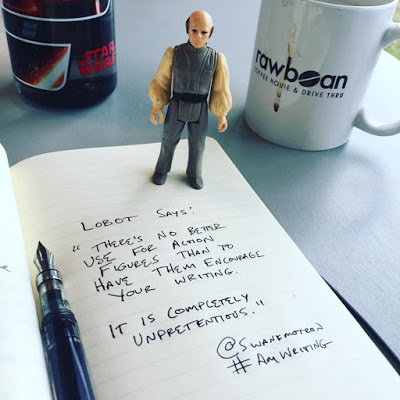 STAR
WARS
rawbean
COFFEE HOUSE & DRIVE THRU
LOBOT SAYS:
"THERE'S NO BETTER
USE FOR ACTION
FIGURES THAN TO
HAVE THEM ENCOURAGE
YOUR WRITING.
IT IS COMPLETELY
UNPRETENTIOUS."
@SWANKMOTRON
#AMWRITING